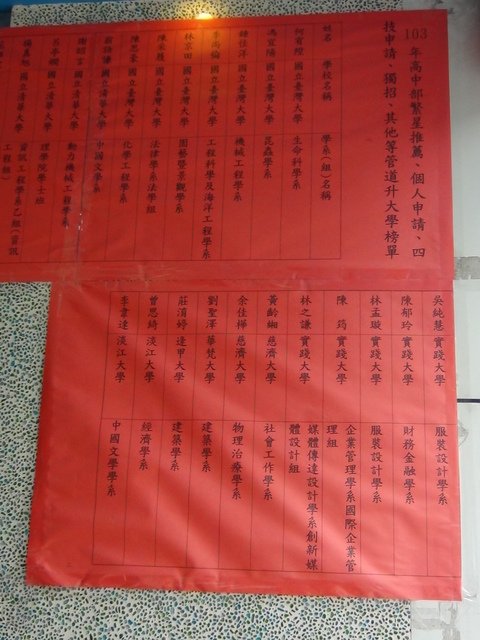 103 年高中部繁星推薦、個人申請、四
技申請、獨招、其他等管道升大學榜單
姓名 學校名稱 學系(組)名稱
國立臺灣大學 生命科學系
馮宣陽 國立臺灣大學 昆蟲學系
鍾佳洋 國立臺灣大學 機械工程學系
李尚倫 國立臺灣大學 工程科學及海洋工程學系
林京田 國立臺灣大學 園藝暨景觀學系
陳采履 國立臺灣大學 法律學系法學組
陳思豪 國立臺灣大學 化學工程學系
國立清華大學 中國文學系
謝昭言 國立清華大學 動力機械工程學系
國立清華大學 理學院學士班
國立清華大學 資訊工程學系乙組(資訊
工程組)
吳純慧 實踐大學 服裝設計學系
陳郁玲 實踐大學 財務金融學系
林孟璇 實踐大學 服裝設計學系
陳筠 實踐大學 企業管理學系國際企業管
理組
林之謙 實踐大學 媒體傳達設計學系創新媒
體設計組
黃齡緗 慈濟大學 社會工作學系
余佳樺 慈濟大學 物理治療學系
劉聖澤 華梵大學 建築學系
莊淯婷 逢甲大學 建築學系
曾思綺 淡江大學 經濟學系
李韋達 淡江大學 中國文學學系